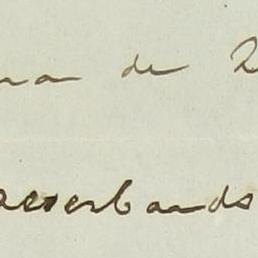 na de 2
aeserbands